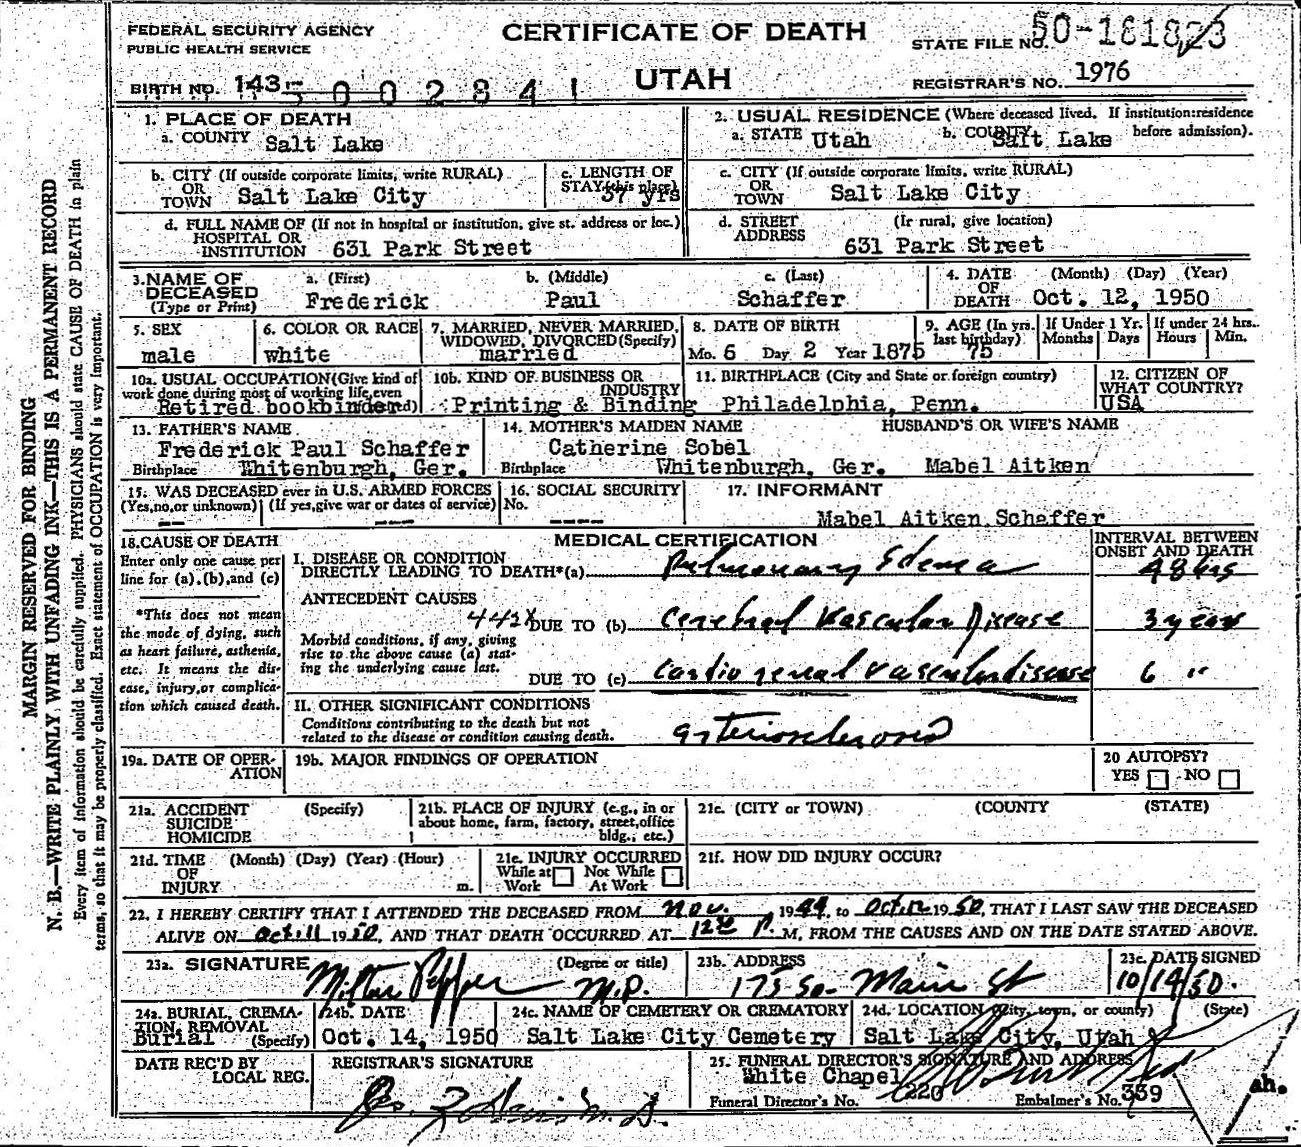 FEDERAL SECURITY AGENCY
PUBLIC HEALTH SERVICE
CERTIFICATE OF DEATH
STATE FILE NO. 50-181823
BIRTH NO. 143- 002841
UTAH
REGISTRAR'S NO. 1976
1. PLACE OF DEATH
a. COUNTY Salt Lake
2. USUAL RESIDENCE (Where deceased lived. If institution:residence before admission).
a. STATE Utah b. COUNTY Salt Lake
b. CITY (If outside corporate limits, write RURAL)
OR TOWN Salt Lake City
c. LENGTH OF STAY (this place) 37 yrs
c. CITY (If outside corporate limits, write RURAL)
OR TOWN Salt Lake City
d. FULL NAME OF (If not in hospital or institution, give st. address or loc.)
HOSPITAL OR INSTITUTION 631 Park Street
d. STREET ADDRESS (If rural, give location)
631 Park Street
3. NAME OF DECEASED (Type or Print)
a. (First) b. (Middle) c. (Last)
Frederick Paul Schaffer
4. DATE OF DEATH (Month) (Day) (Year)
Oct. 12, 1950
5. SEX
male
6. COLOR OR RACE
white
7. MARRIED, NEVER MARRIED, WIDOWED, DIVORCED (Specify)
married
8. DATE OF BIRTH
Mo. 6 Day 2 Year 1875
9. AGE (In yrs. last birthday) 75
If Under 1 Yr. Months Days
If under 24 hrs. Hours Min.
10a. USUAL OCCUPATION (Give kind of work done during most of working life, even
Retired bookbinder
10b. KIND OF BUSINESS OR INDUSTRY
Printing & Binding
11. BIRTHPLACE (City and State or foreign country)
Philadelphia, Penn.
12. CITIZEN OF WHAT COUNTRY?
USA
13. FATHER'S NAME
Frederick Paul Schaffer
Birthplace Whitenburgh, Ger.
14. MOTHER'S MAIDEN NAME
Catherine Sobel
Birthplace Whitenburgh, Ger.
HUSBAND'S OR WIFE'S NAME
Mabel Aitken
15. WAS DECEASED ever in U.S. ARMED FORCES
(Yes, no, or unknown) (If yes, give war or dates of service)
-- ---
16. SOCIAL SECURITY No.
----
17. INFORMANT
Mabel Aitken Schaffer
18. CAUSE OF DEATH
Enter only one cause per line for (a), (b), and (c)
*This does not mean the mode of dying, such as heart failure, asthenia, etc. It means the disease, injury, or complication which caused death.
MEDICAL CERTIFICATION
INTERVAL BETWEEN ONSET AND DEATH
I. DISEASE OR CONDITION
DIRECTLY LEADING TO DEATH*(a) Pulmonary Edema 48 hrs
ANTECEDENT CAUSES
442X
DUE TO (b) Cerebral Vascular Disease 3 years
Morbid conditions, if any, giving rise to the above cause (a) stating the underlying cause last.
DUE TO (c) Cardio renal vascular disease 6 "
II. OTHER SIGNIFICANT CONDITIONS
Conditions contributing to the death but not related to the disease or condition causing death.
arteriosclerosis
19a. DATE OF OPERATION
19b. MAJOR FINDINGS OF OPERATION
20 AUTOPSY?
YES NO
21a. ACCIDENT SUICIDE HOMICIDE (Specify)
21b. PLACE OF INJURY (e.g., in or about home, farm, factory, street, office bldg., etc.)
21c. (CITY or TOWN) (COUNTY) (STATE)
21d. TIME OF INJURY (Month) (Day) (Year) (Hour) m.
21e. INJURY OCCURRED
While at Work Not While At Work
21f. HOW DID INJURY OCCUR?
22. I HEREBY CERTIFY THAT I ATTENDED THE DECEASED FROM Nov. 1949, to Oct. 12 1950, THAT I LAST SAW THE DECEASED
ALIVE ON Oct. 11 1950, AND THAT DEATH OCCURRED AT 12:30 P. M, FROM THE CAUSES AND ON THE DATE STATED ABOVE.
23a. SIGNATURE (Degree or title)
Milton Pepper M.D.
23b. ADDRESS
175 So. Main St
23c. DATE SIGNED
10/14/50.
24a. BURIAL, CREMATION, REMOVAL (Specify)
Burial
24b. DATE
Oct. 14, 1950
24c. NAME OF CEMETERY OR CREMATORY
Salt Lake City Cemetery
24d. LOCATION (City, town, or county) (State)
Salt Lake City, Utah
DATE REC'D BY LOCAL REG.
REGISTRAR'S SIGNATURE
25. FUNERAL DIRECTOR'S SIGNATURE AND ADDRESS
White Chapel
Funeral Director's No. 220 Embalmer's No. 339
ah.
MARGIN RESERVED FOR BINDING
N. B.—WRITE PLAINLY WITH UNFADING INK—THIS IS A PERMANENT RECORD
Every item of information should be carefully supplied. PHYSICIANS should state CAUSE OF DEATH in plain
terms, so that it may be properly classified. Exact statement of OCCUPATION is very important.